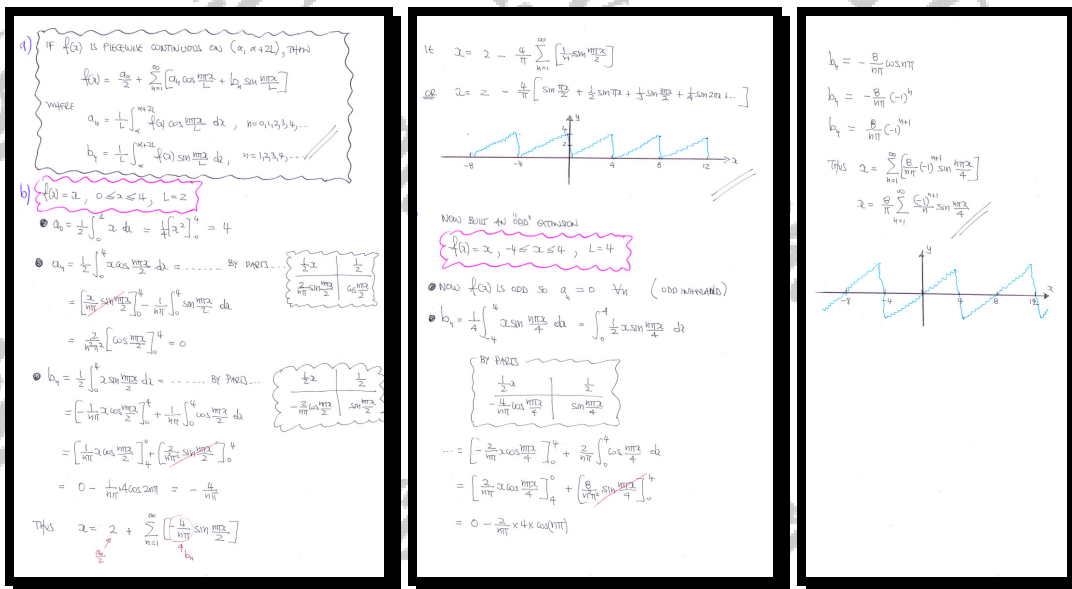 a) IF f(x) IS PIECEWISE CONTINUOUS ON (α, α+2L), THEN
f(x) = a₀/2 + ∑_{n=1}^{∞} [aₙ cos nπx/L + bₙ sin nπx/L]
WHERE
aₙ = 1/L ∫_α^{α+2L} f(x) cos nπx/L dx , n=0,1,2,3,4,...
bₙ = 1/L ∫_α^{α+2L} f(x) sin nπx/L dx, n=1,2,3,4,...
b) f(x) = x, 0≤x≤4, L=2
• a₀ = 1/2 ∫_0^4 x dx = 1/4 [x²]_0^4 = 4
• aₙ = 1/2 ∫_0^4 x cos nπx/2 dx = ...... BY PARTS...
½x | ½
2/nπ sin nπx/2 | cos nπx/2
= [x/nπ sin nπx/2]_0^4 - 1/nπ ∫_0^4 sin nπx/2 dx
= 2/n²π² [cos nπx/2]_0^4 = 0
• bₙ = 1/2 ∫_0^4 x sin nπx/2 dx = ...... BY PARTS...
½x | ½
-2/nπ cos nπx/2 | sin nπx/2
= [-1/nπ x cos nπx/2]_0^4 + 1/nπ ∫_0^4 cos nπx/2 dx
= [1/nπ x cos nπx/2]_4^0 + [2/n²π² sin nπx/2]_0^4
= 0 - 1/nπ ×4cos2nπ = -4/nπ
THUS x = 2 + ∑_{n=1}^{∞} [-4/nπ sin nπx/2]
a₀/2 bₙ
IE x = 2 - 4/π ∑_{n=1}^{∞} [1/n sin nπx/2]
OR x = 2 - 4/π [sin πx/2 + ½ sin πx + ⅓ sin 3πx/2 + ¼ sin 2πx + ...]
y
4
2
-8 -4 4 8 12 x
NOW BUILT AN "ODD" EXTENSION
f(x) = x, -4≤x≤4, L=4
• NOW f(x) IS ODD SO aₙ = 0 ∀n (ODD INTEGRAND)
• bₙ = 1/4 ∫_{-4}^4 x sin nπx/4 dx = ∫_0^4 ½ x sin nπx/4 dx
BY PARTS
½x | ½
-4/nπ cos nπx/4 | sin nπx/4
... = [-2/nπ x cos nπx/4]_0^4 + 2/nπ ∫_0^4 cos nπx/4 dx
= [2/nπ x cos nπx/4]_4^0 + [8/n²π² sin nπx/4]_0^4
= 0 - 2/nπ × 4 × cos(nπ)
bₙ = -8/nπ cos nπ
bₙ = -8/nπ (-1)ⁿ
bₙ = 8/nπ (-1)ⁿ⁺¹
THUS x = ∑_{n=1}^{∞} [8/nπ (-1)ⁿ⁺¹ sin nπx/4]
x = 8/π ∑_{n=1}^{∞} (-1)ⁿ⁺¹/n sin nπx/4
y
-8 -4 4 8 12 x